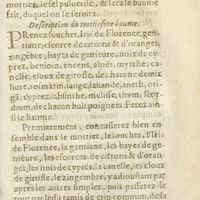 mortier, iosel puluerisé, & sera le baume
fait, duquel on se seruira.
Description du trentiesme baume.
PRenez souchet, Iris de Florence, gen-
tiane, escorce de citrons & d'oranges,
zingẽbre, bayes de genieure, noix de cy
prez, benioin, encens, aloës, myrrhe, ca-
nelle, cloux de girofle, de chacune demie
liure, rosmarin, sauge, laurier, aneth, ori-
gã, cyprez, absinthe, melisse, thym, scor-
dium, de chacun huit poignees. Ferez ainsi
le baume.
Premierement, concasserez bien en-
semble dans le mortier, le souchet, l'Iris
de Florence, la gentiane, les bayes de gene-
uiere, les escorces de citrons & d'oran-
ges, les noix de cyprés, la canelle, les cloux
de girofle, le zingembre, y adioustant par
apres les autres simples, puis passerez le
tout par le tamis de crin commun, da